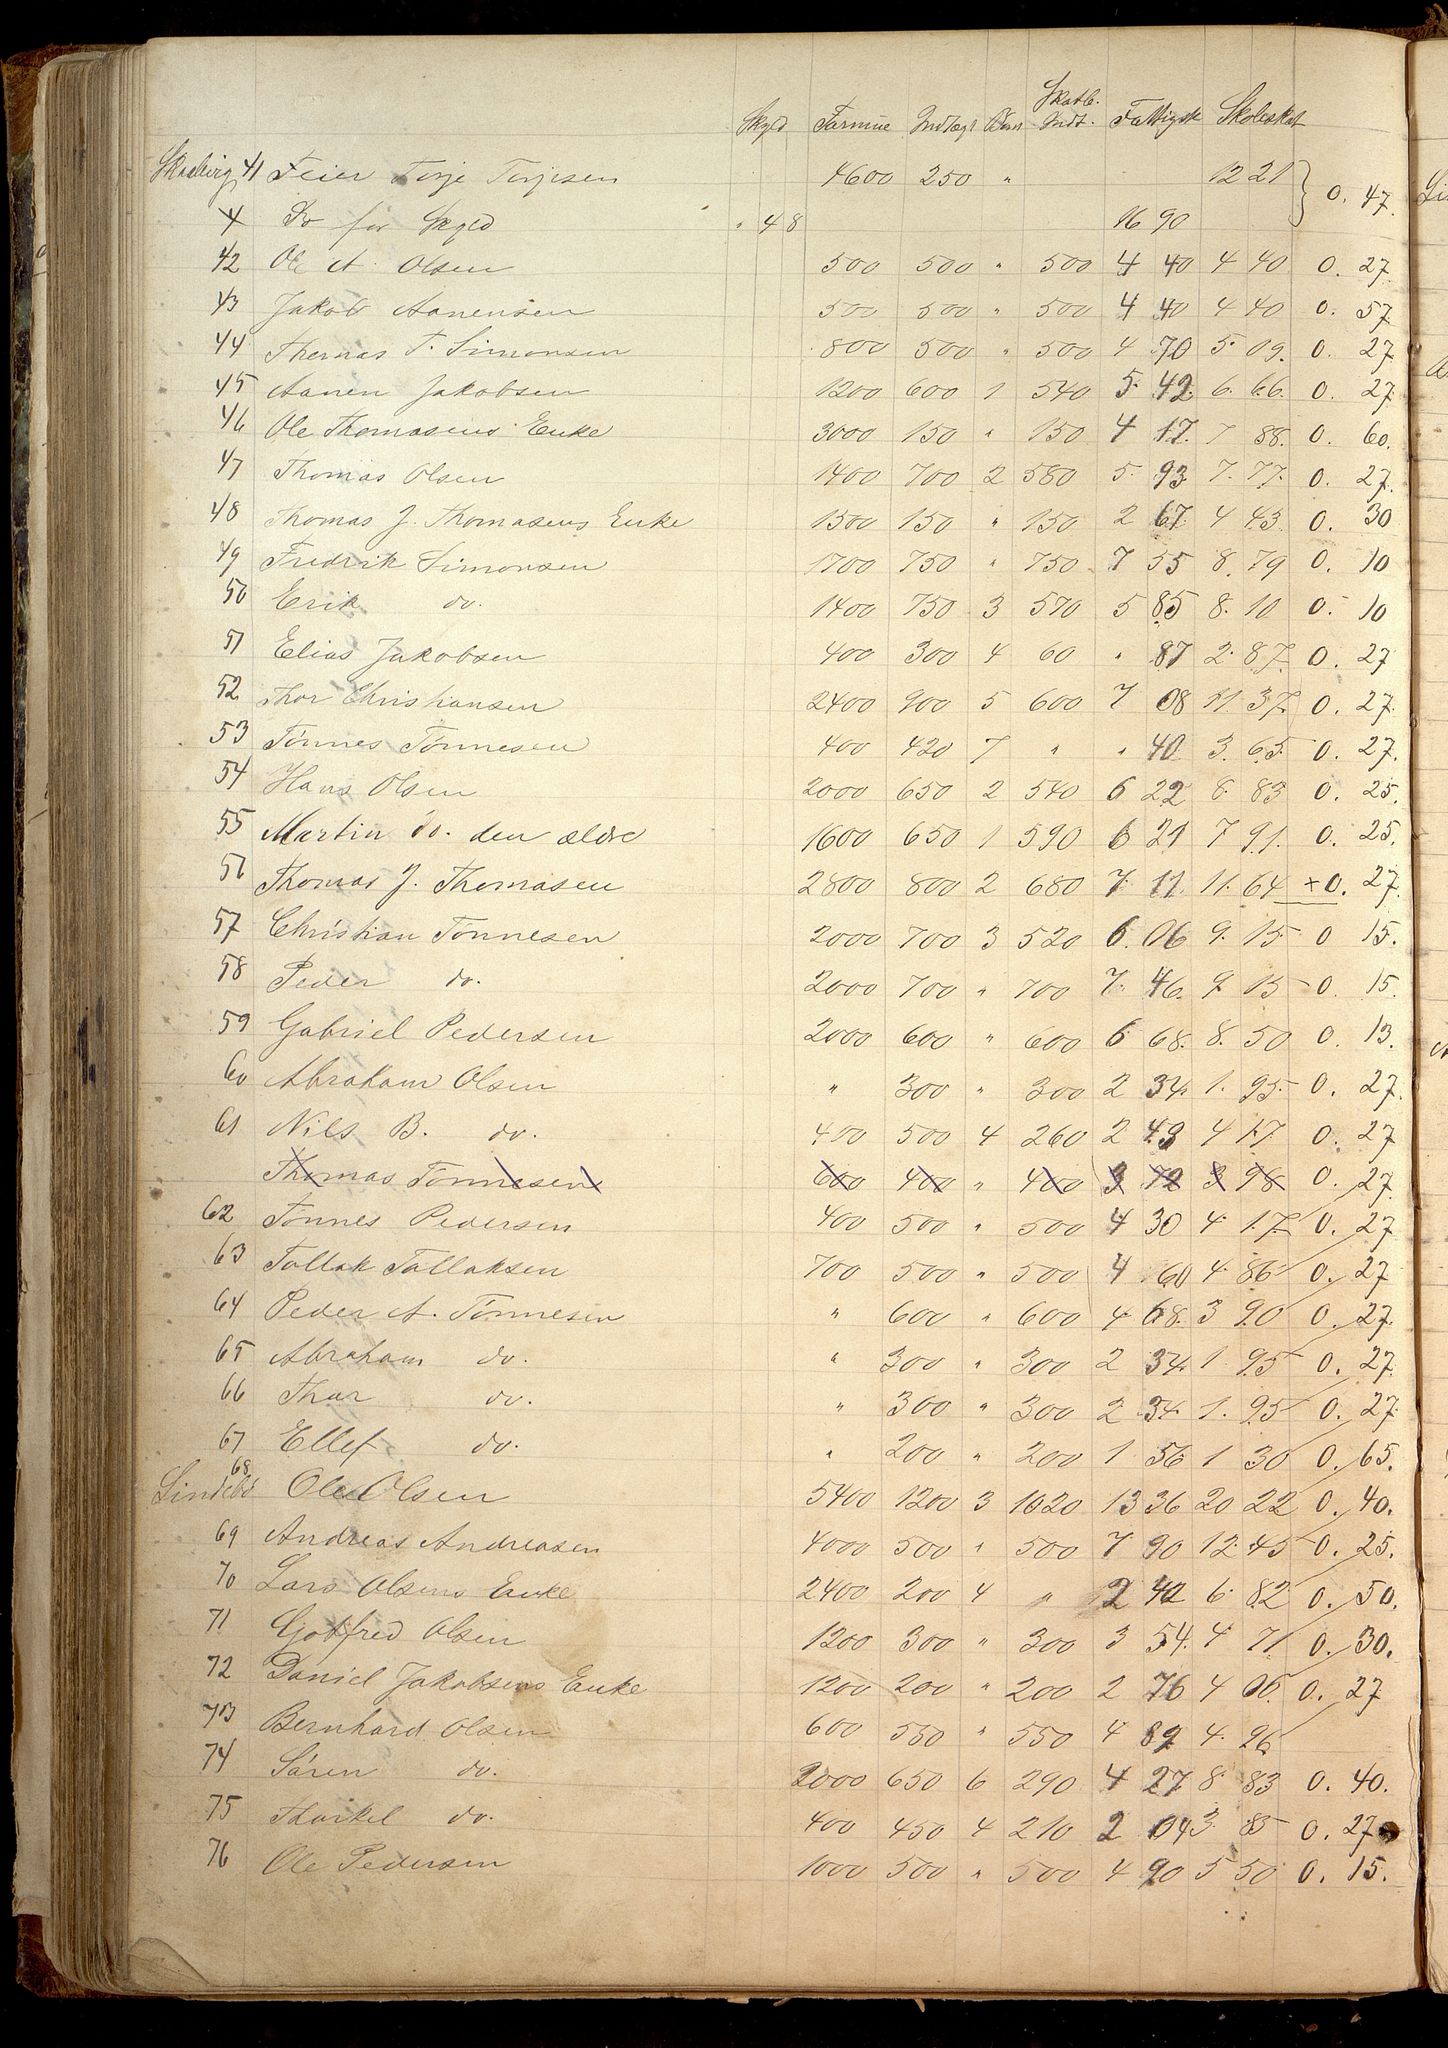 Skyld Formue Indtægt Børn Skatb. Indt. Fattigsk Skoleskat
Skaalevig 41 Feier Torje Torjesen 4600 250 " 12 21 } 0. 47.
X Do for Skyld " 48 16 90
42 Ole A. Olsen 500 500 " 500 4 40 4 40 0. 27.
43 Jakob Aanensen 500 500 " 500 4 40 4 40 0. 57.
44 Thomas T. Simonsen 800 500 " 500 4 70 5. 09. 0. 27.
45 Aanen Jakobsen 1200 600 1 540 5. 42. 6. 66. 0. 27.
46 Ole Thomasens Enke 3000 150 " 150 4 17. 7 88. 0. 60.
47 Thomas Olsen 1400 700 2 580 5. 93. 7. 77. 0. 27.
48 Thomas J. Thomasens Enke 1500 150 " 150 2 67. 4 43. 0. 30
49 Fredrik Simonsen 1700 750 " 750 7 55 8. 79 0. 10
50 Erik do. 1400 750 3 570 5 85 8. 10 0. 10
51 Elias Jakobsen 400 300 4 60 " 87 2. 87. 0. 27
52 Thor Christiansen 2400 900 5 600 7 08 11. 37. 0. 27.
53 Tönnes Tönnesen 400 420 7 " " 40. 3. 65. 0. 27.
54 Hans Olsen 2000 650 2 540 6 22 8. 83 0. 25.
55 Martin do. den ældre 1600 650 1 590 6 21 7 91. 0. 25.
56 Thomas J. Thomasen 2800 800 2 680 7. 11. 11. 64 +0. 27.
57 Christian Tönnesen 2000 700 3 520 6. 06 9. 15. 0 15.
58 Peder do. 2000 700 " 700 7. 46. 9. 15 0. 15.
59 Gabriel Pedersen 2000 600 " 600 6 68. 8. 50 0. 13.
60 Abraham Olsen " 300 " 300 2 34. 1. 95. 0. 27.
61 Nils B. do. 400 500 4 260 2 43 4 17. 0. 27
Thomas Tönnesen 600 400 " 400 3 72 3 98 0. 27.
62 Tönnes Pedersen 400 500 " 500 4 30 4. 17. 0. 27
63 Tallak Tallaksen 700 500 " 500 4 60 4. 86 0. 27
64 Peder A. Tönnesen " 600 " 600 4. 68. 3 90 0. 27.
65 Abraham do. " 300 " 300 2 34. 1. 95 0. 27.
66 Thor do. " 300 " 300 2 34. 1. 95 0. 27.
67 Ellef do. " 200 " 200 1 56 1 30 0. 65.
Lindebö 68 Ole Olsen 5400 1200 3 1020 13 36 20 22 0. 40.
69 Andreas Andreasen 4000 500 " 500 7 90 12. 45 0. 25.
70 Lars Olsens Enke 2400 200 4 " 2 42 6. 82 0. 50.
71 Gotfred Olsen 1200 300 " 300 3 54. 4. 71. 0. 30.
72 Daniel Jakobsens Enke 1200 200 " 200 2 76 4 06. 0. 27
73 Bernhard Olsen 600 550 " 550 4 89 4. 96
74 Sören do. 2000 650 6 290 4 27. 8. 83 0. 40.
75 Thorkel do. 400 450 4 210 2 04 3. 85 0. 27
76 Ole Pedersen 1000 500 " 500 4 90 5 50 0. 15.